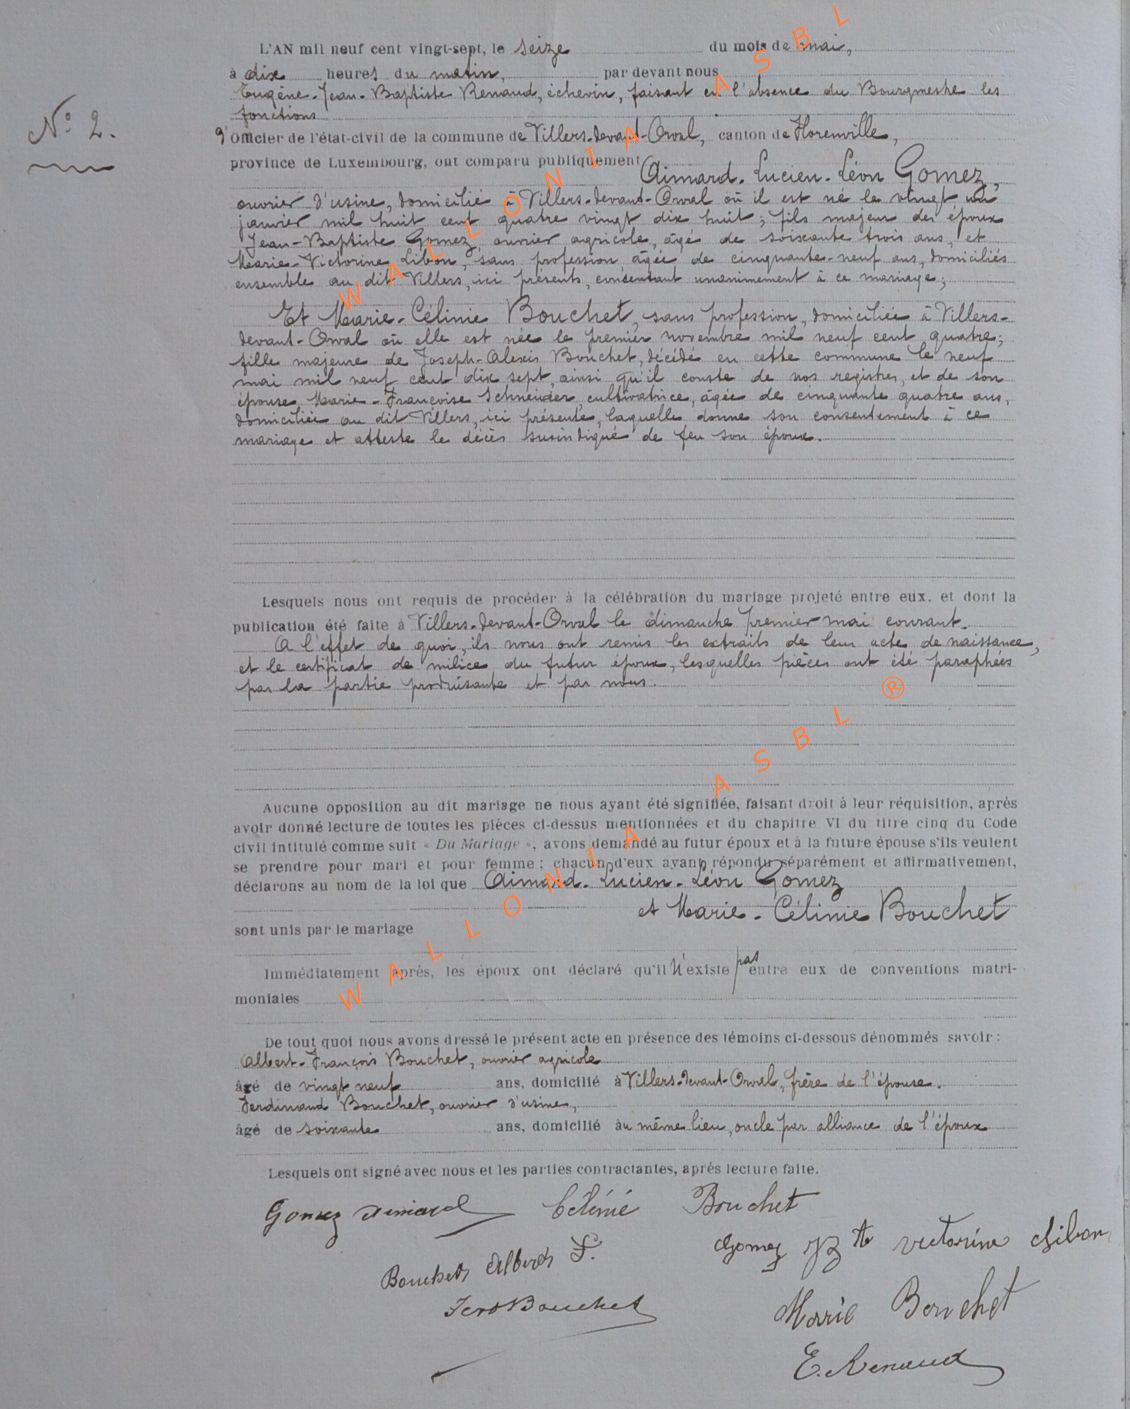 L'AN mil neuf cent vingt-sept, le seize du mois de mai,
à dix heures du matin, par devant nous
Eugène-Jean-Baptiste Renaud, échevin, faisant en l'absence du Bourgmestre les
fonctions
N° 2.
d'Officier de l'état-civil de la commune de Villers-devant-Orval, canton de Florenville,
province de Luxembourg, ont comparu publiquement Aimard-Lucien-Léon Gomez,
ouvrier d'usine, domicilié à Villers-devant-Orval où il est né le vingt un
janvier mil huit cent quatre vingt dix huit; fils majeur des époux
Jean-Baptiste Gomez, ouvrier agricole, âgé de soixante trois ans, et
Marie-Victorine Libon, sans profession âgée de cinquante-neuf ans, domiciliés
ensemble au dit Villers, ici présents, consentant unanimement à ce mariage;
Et Marie-Célinie Bouchet, sans profession, domiciliée à Villers-
devant-Orval où elle est née le premier novembre mil neuf cent quatre;
fille majeure de Joseph-Alexis Bouchet, décédé en cette commune le neuf
mai mil neuf cent dix sept, ainsi qu'il conste de nos registres, et de son
épouse, Marie-Françoise Schneider, cultivatrice, âgée de cinquante quatre ans,
domiciliée au dit Villers, ici présente, laquelle donne son consentement à ce
mariage et atteste le décès susindiqué de feu son époux.
Lesquels nous ont requis de procéder à la célébration du mariage projeté entre eux, et dont la
publication été faite à Villers-devant-Orval le dimanche premier mai courant.
A l'effet de quoi, ils nous ont remis les extraits de leur acte de naissance,
et le certificat de milice du futur époux, lesquelles pièces ont été paraphées
par la partie produisante et par nous.
Aucune opposition au dit mariage ne nous ayant été signifiée, faisant droit à leur réquisition, après
avoir donné lecture de toutes les pièces ci-dessus mentionnées et du chapitre VI du titre cinq du Code
civil intitulé comme suit « Du Mariage », avons demandé au futur époux et à la future épouse s'ils veulent
se prendre pour mari et pour femme ; chacun d'eux ayant répondu séparément et affirmativement,
déclarons au nom de la loi que Aimard-Lucien-Léon Gomez
et Marie-Célinie Bouchet
sont unis par le mariage
Immédiatement après, les époux ont déclaré qu'il n'existe pas entre eux de conventions matri-
moniales
De tout quoi nous avons dressé le présent acte en présence des témoins ci-dessous dénommés savoir :
Albert-François Bouchet, ouvrier agricole
âgé de vingt neuf ans, domicilié à Villers-devant-Orval, frère de l'épouse.
Ferdinand Bouchet, ouvrier d'usine,
âgé de soixante ans, domicilié au même lieu, oncle par alliance de l'époux
Lesquels ont signé avec nous et les parties contractantes, après lecture faite.
Gomez Aimard Célinie Bouchet
Gomez JBte Victorine Libon
Bouchet Albert F.
Ferd Bouchet
Marie Bouchet
E. Renaud
WALLONIA ASBL
WALLONIA ASBL ®